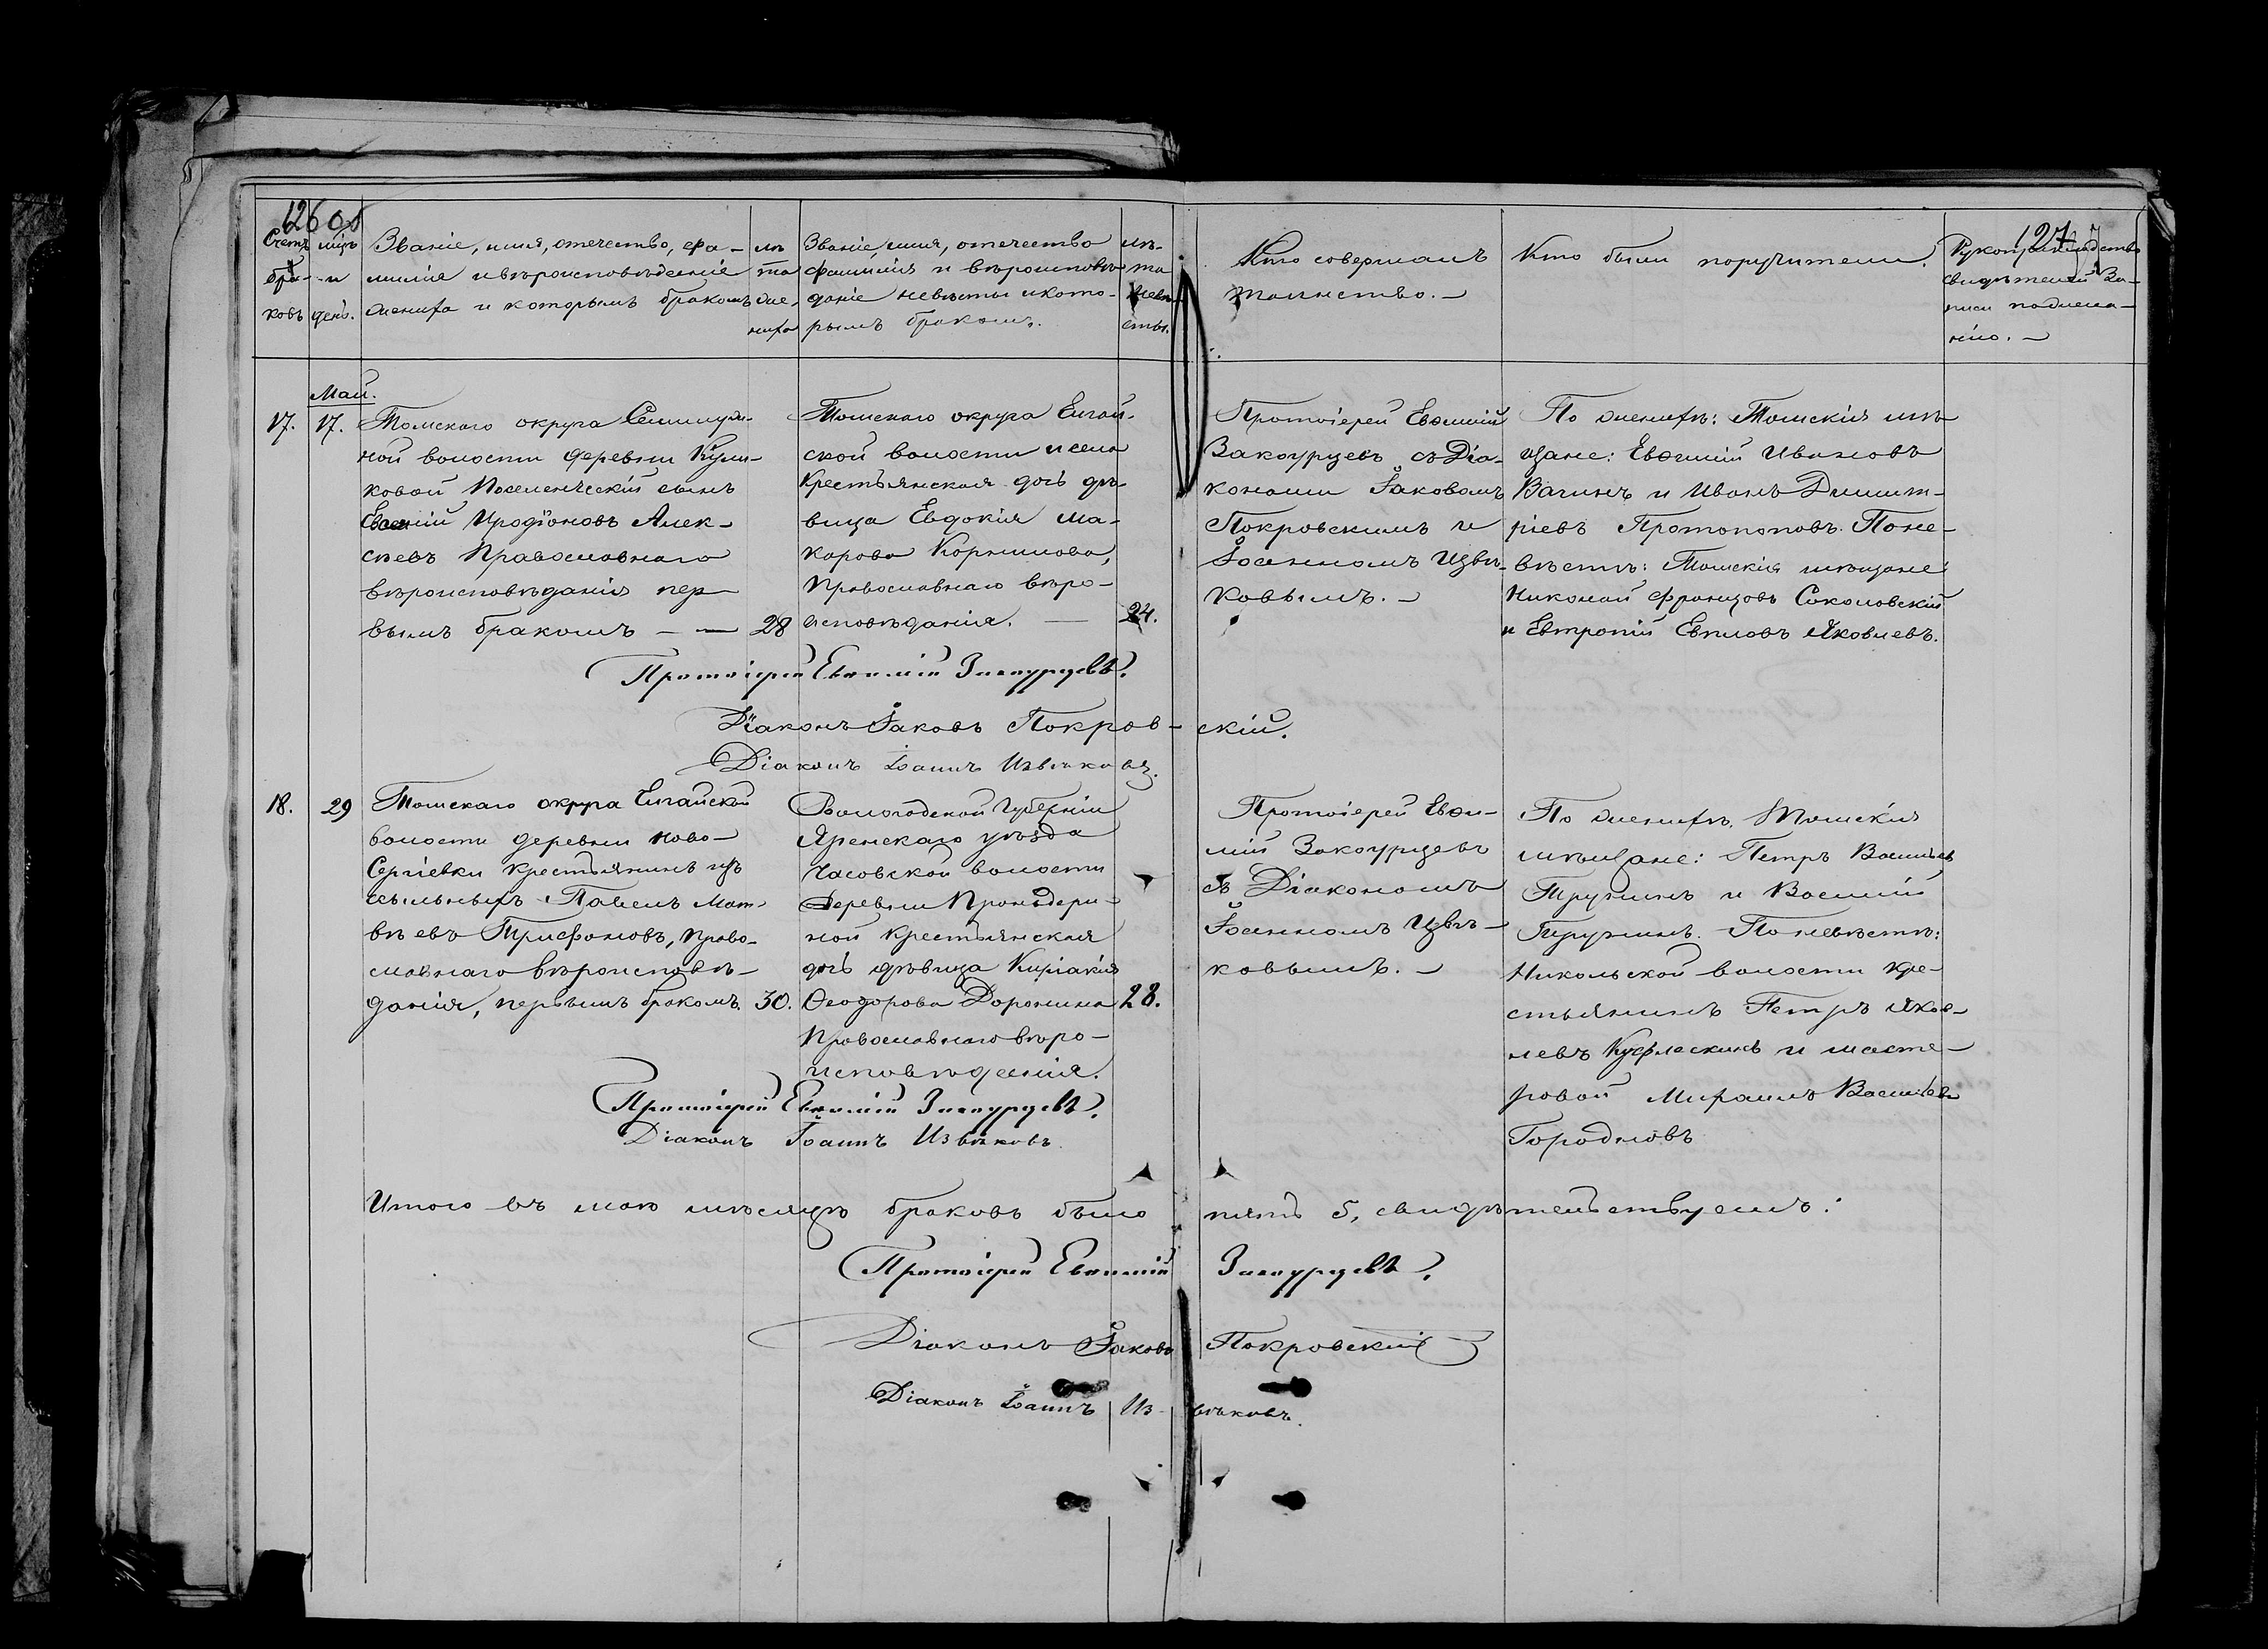 126 об
127
Счетъ
бра-
ковъ
мцъ
и
день.
Званіе, имя, отечество, фа-
милія и вѣроисповѣданіе
жениха и которымъ бракомъ
лѣ
та
же-
ниха
Званіе, имя, отечество
фамилія и вѣроисповѣ-
даніе невѣсты и кото-
рымъ бракомъ.
лѣ-
та
невѣ-
сты.
Кто совершалъ
таинство.
Кто были поручители.
свидѣтелей За-
писи по желанію
нію.
Май.
17.
17.
Томскаго округа
ной волости деревни Кули-
ковой Поселенческій сынъ
Евѳимій Иродіоновъ Алек-
сѣевъ Православнаго
вѣроисповѣданія пер-
вымъ бракомъ — — 28
Томскаго округа Елгай-
ской волости и села
Крестьянская дочь дѣ-
вица Евдокія Ма-
карова Корнилова,
Православнаго вѣро-
исповѣданія. — 24.
Протоіерей Евѳимій
Закоурцевъ съ Діа-
конами Іаковомъ
Покровскимъ и
Іоанномъ Извѣ-
ковымъ. —
По женихѣ: Томскія мѣ
щане: Евѳимій Ивановъ
Вагинъ и Иванъ Димит-
ріевъ Протопоповъ. По не-
вѣстѣ: Томскія мѣщане
Николай Францовъ Соколовскій
и Евтропій Евпловъ Яковлевъ.
Протоіерей Евѳимій Закоурцевъ.
Діаконъ Іаковъ Покров-скій.
Діаконъ Іоаннъ Извѣковъ.
18.
29
Томскаго округа Елгайской
волости деревни Ново-
Сергіевки крестьянинъ изъ
ссыльныхъ Павелъ Мат-
вѣевъ Трифоновъ, Право-
славнаго вѣроисповѣ-
данія, первымъ бракомъ. 30.
Вологодской Губерніи
Яренскаго уѣзда
Часовской волости
Деревни
ной крестьянская
дочь дѣвица Киріакія
Ѳеодорова Доронина 28.
Православнаго вѣро-
исповѣданія.
Протоіерей Евѳи-
мій Закоурцевъ
съ Діакономъ
Іоанномъ Извѣ-
ковымъ. —
По женихѣ. Томскія
мѣщане: Петръ Васильевъ
Трунинъ и Василій
Трунинъ. По невѣстѣ:
Никольской волости кре-
стьянинъ Петръ Яков-
левъ и масте-
ровой Мираилъ Васильевъ
Городковъ
Протоіерей Евѳимій Закоурцевъ.
Діаконъ Іоаннъ Извѣковъ.
Итого въ маѣ мѣсяцѣ браковъ было пять 5, свидѣтельствуемъ:
Протоіерей Евѳимій Закоурцевъ.
Діаконъ Іаковъ Покровскій
Діаконъ Іоаннъ Из-вѣковъ.